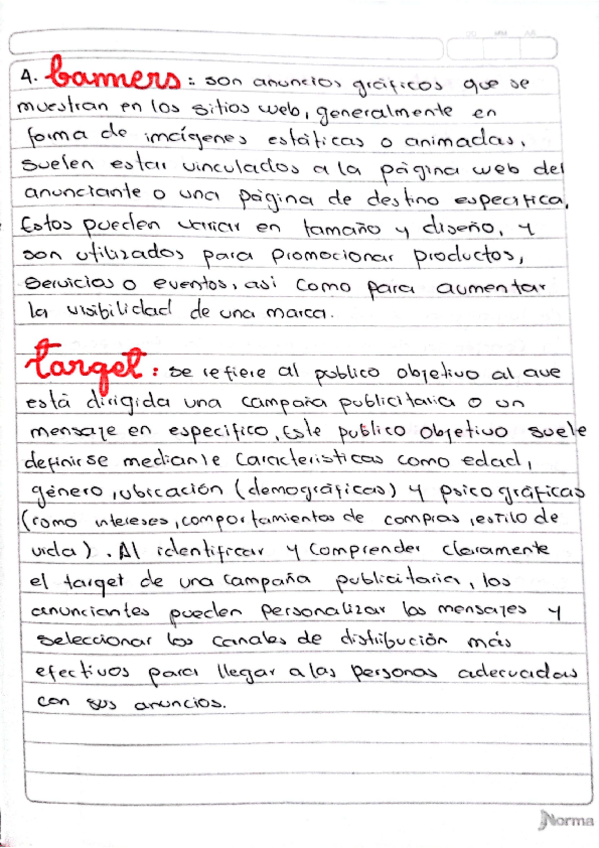 4. banners: son anuncios gráficos que se
muestran en los sitios web, generalmente en
forma de imágenes estáticas o animadas,
suelen estar vinculados a la página web del
anunciante o una página de destino específica.
Estos pueden variar en tamaño y diseño, y
son utilizados para promocionar productos,
servicios o eventos, asi como para aumentar
la visibilidad de una marca.
target: se refiere al publico objetivo al que
está dirigida una campaña publicitaria o un
mensaje en especifico, Este publico objetivo suele
definirse mediante caracteristicas como edad,
género, ubicación (demográficas) y psicográficas
(como intereses, comportamientos de compras, estilo de
vida). Al identificar y comprender claramente
el target de una campaña publicitaria, los
anunciantes pueden personalizar los mensajes y
seleccionar los canales de distribución más
efectivos para llegar a las personas adecuadas
con sus anuncios.
Norma